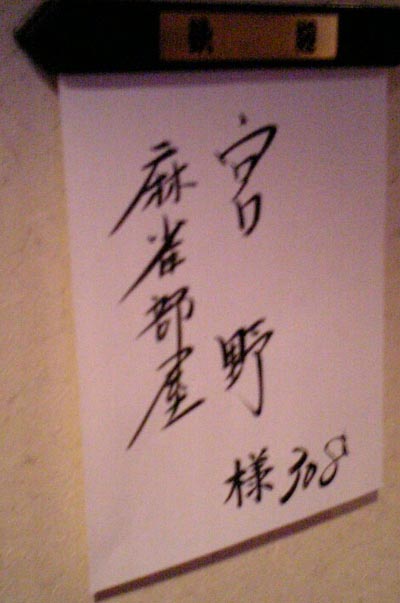 宮野様308
麻雀部屋